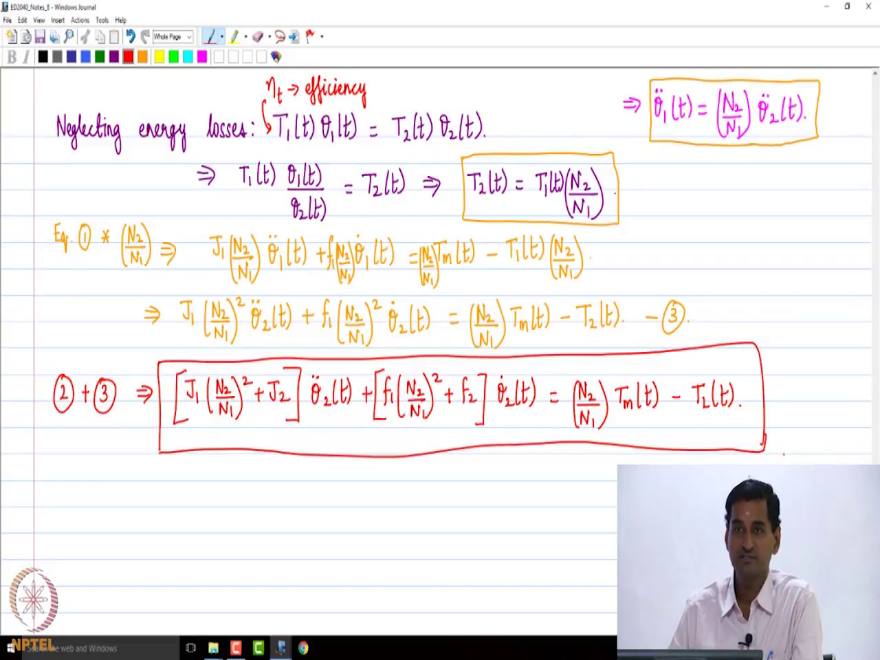 ED2040_Notes_8 - Windows Journal
File Edit View Insert Actions Tools Help
Whole Page
B I
η_t → efficiency
Neglecting energy losses: T₁(t) θ₁(t) = T₂(t) θ₂(t).
⇒ θ̈₁(t) = (N₂/N₁) θ̈₂(t).
⇒ T₁(t) θ₁(t)/θ₂(t) = T₂(t) ⇒ T₂(t) = T₁(t)(N₂/N₁).
Eq. ① * (N₂/N₁) ⇒ J₁(N₂/N₁) θ̈₁(t) + f₁(N₂/N₁) θ̇₁(t) = (N₂/N₁)Tm(t) − T₁(t)(N₂/N₁).
⇒ J₁(N₂/N₁)² θ̈₂(t) + f₁(N₂/N₁)² θ̇₂(t) = (N₂/N₁) Tm(t) − T₂(t). − ③.
② + ③ ⇒ [J₁(N₂/N₁)² + J₂] θ̈₂(t) + [f₁(N₂/N₁)² + f₂] θ̇₂(t) = (N₂/N₁) Tm(t) − TL(t).
NPTEL
the web and Windows